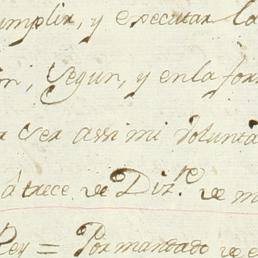 umplir, y executar la
on, segun, y en la for
r ser assi mi volunta
á trece de Diz.re de m
Rey = Por mandado de e